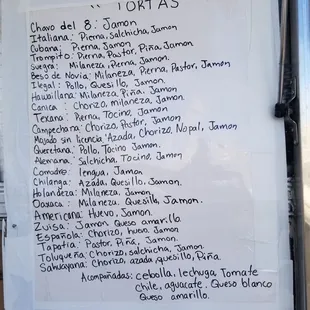 " TORTAS
Chavo del 8: Jamon
Italiana: Pierna, Salchicha, Jamon
Cubana: Pierna, Jamon.
Trompito: Pierna, Pastor, Piña, Jamon
Suegra: Milaneza, Pierna, Jamon.
Beso de Novia: Milaneza, Pierna, Pastor, Jamon
Ilegal: Pollo, Quesillo, Jamon.
Hawaillana: Milaneza, Piña, Jamon.
Canica: Chorizo, milaneza, Jamon.
Texana: Pierna, Tocino, Jamon.
Campechana: Chorizo, Pastor, Jamon
Mojado sin licencia: Azada, Chorizo, Nopal, Jamon
Queretana: Pollo, Tocino Jamon.
Alemana: Salchicha, Tocino, Jamon
Comadre: lengua, Jamon.
Chilanga: Azada, Quesillo, Jamon.
Holandeza: Milaneza, Jamon.
Oaxaca: Milaneza, Quesillo, Jamon.
Americana: Huevo, Jamon.
Zuisa: Jamon Queso amarillo
Española: Chorizo, huevo, Jamon
Tapatia: Pastor, Piña, Jamon.
Toluqueña: Chorizo, salchicha, Jamon.
Sahuayana: Chorizo, azada, quesillo, Piña.
Acompañadas: cebolla, lechuga, Tomate
Chile, aguacate, Queso blanco
Queso amarillo.